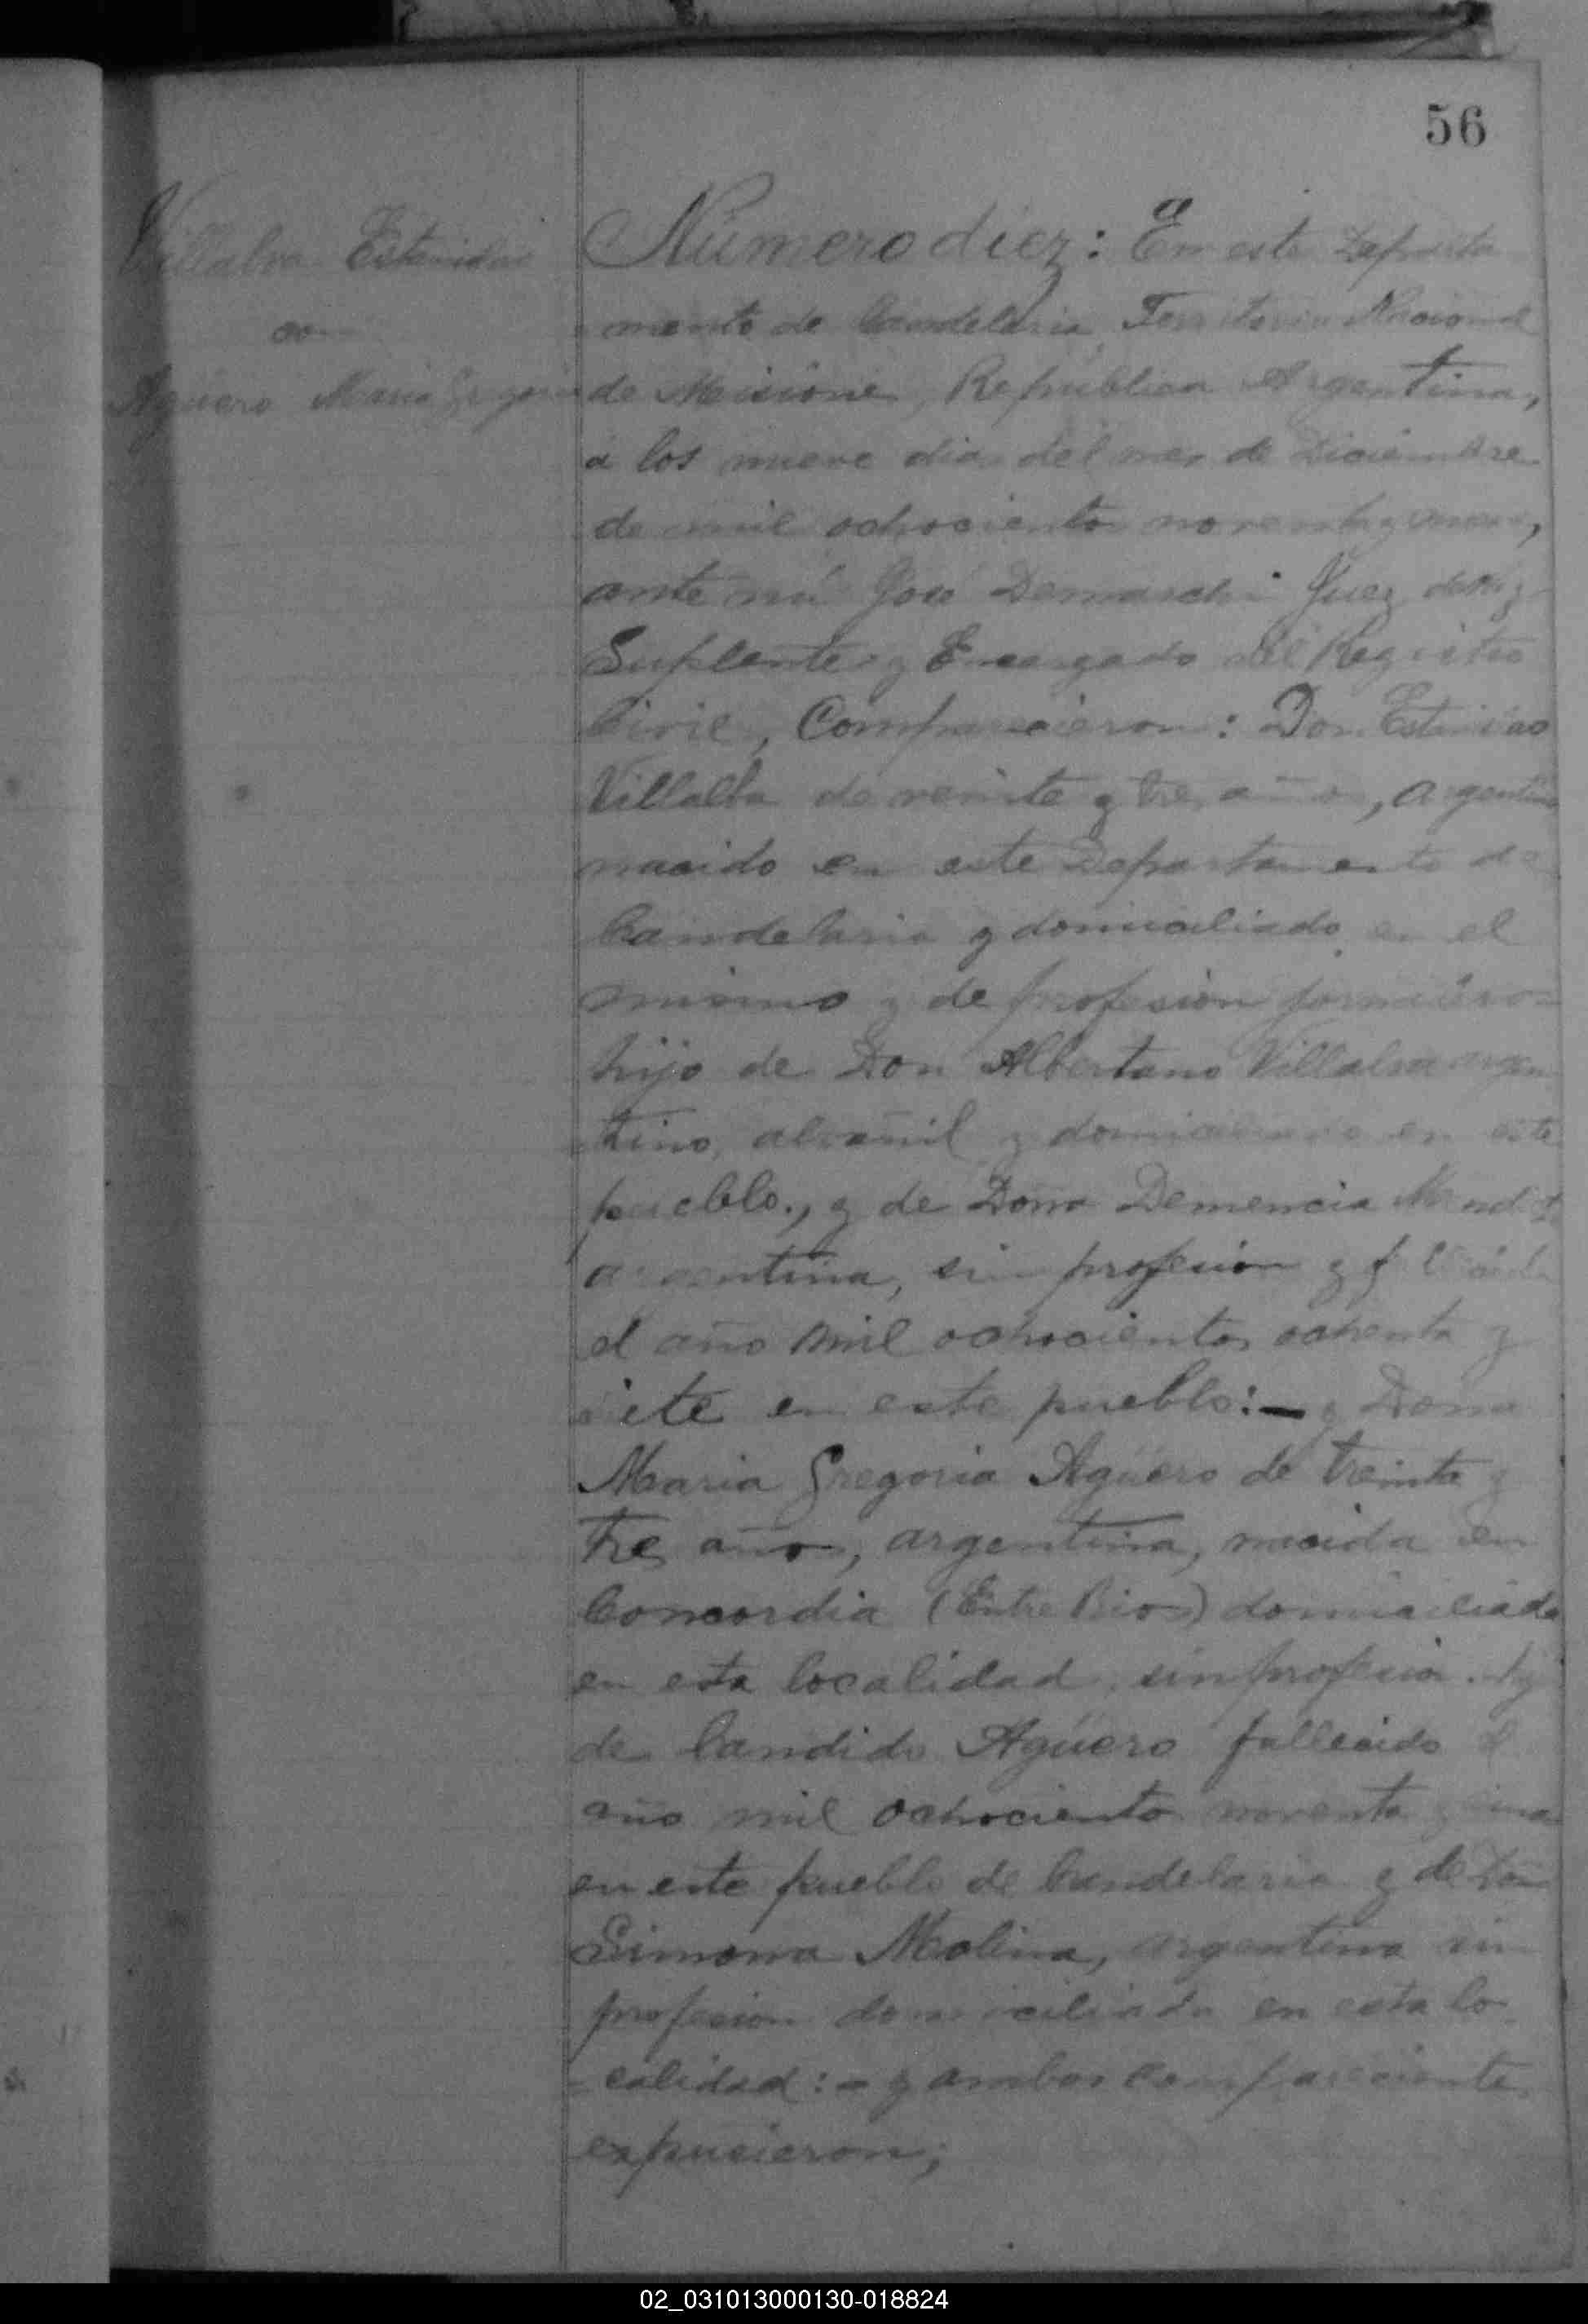 56
Villalva Estanislao
con
Aguero Maria Gregoria
Número diez: En este Departa
mento de Candelaria, Territorio Nacional
de Misiones, República Argentina,
á los nueve dias del mes de Diciembre
de mil ochocientos noventa y
ante mi José Demarchi Juez de Paz
Suplente y Encargado del Registro
Civil, Comparecieron: Don Estanislao
Villalba de veinte y tres años, argentino
nacido en este Departamento de
Candelaria y domiciliado en el
mismo y de profesion jornalero
hijo de Don Albertano Villalva argen
tino, albañil y domiciliado en este
pueblo., y de Doña Demencia
argentina, sin profesion y fallecida
el año mil ochocientos ochenta y
siete en este pueblo:— y Doña
Maria Gregoria Agüero de treinta y
tres años, argentina, nacida en
Concordia (Entre Rios) domiciliada
en esta localidad, sin profesion. hija
de Candido Agüero fallecido el
año mil ochocientos noventa y
en este pueblo de Candelaria y de Doña
Simona Molina, argentina sin
profesion domiciliada en esta lo
calidad:- y ambos comparecientes
expusieron;
02_031013000130-018824